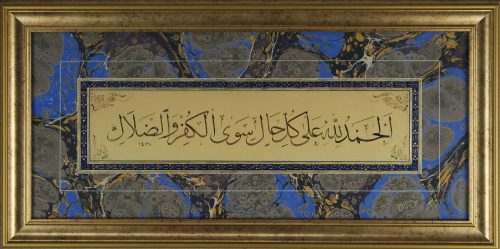 الحمد لله على كل حال سوى الكفر والضلال